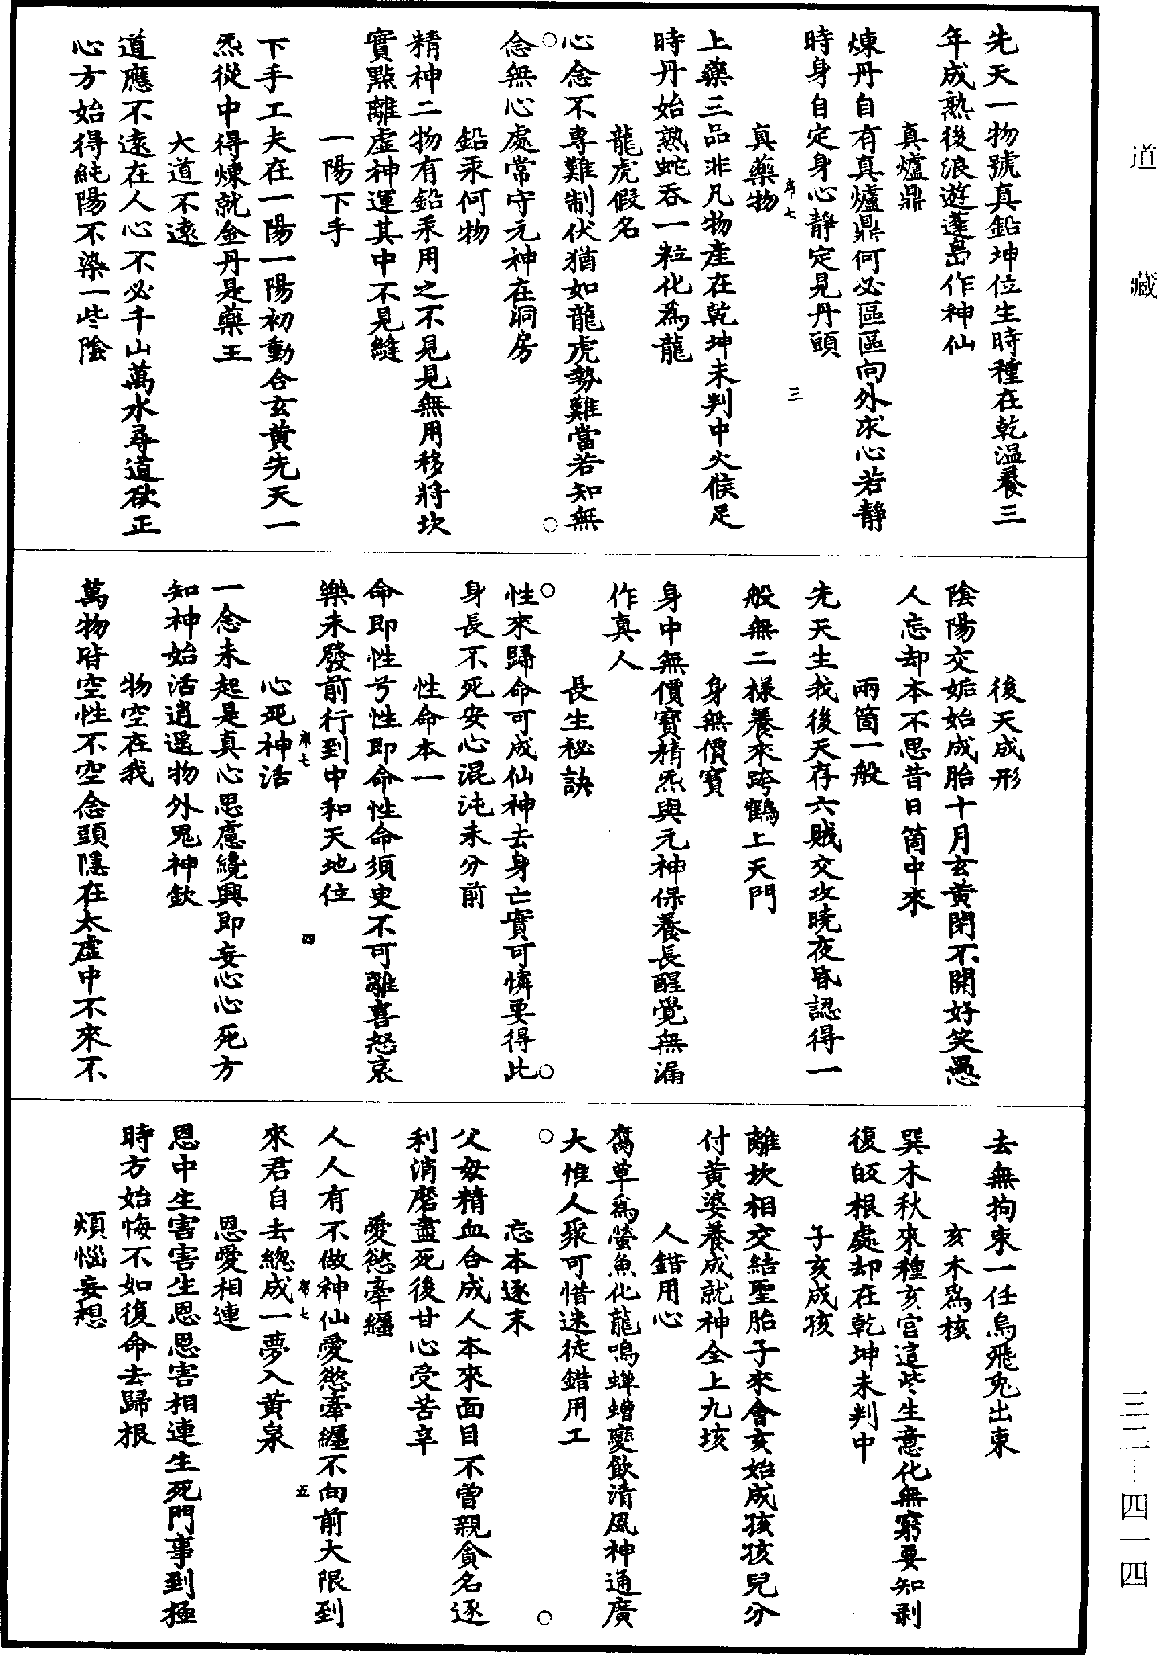 道藏
先天一物號真鉛坤位生時種在乾溫養三
年成熟後浪遊蓬島作神仙
真爐鼎
煉丹自有真爐鼎何必區區向外求心若靜
時身自定身心靜定見丹頭
三
真藥物
上藥三品非凡物產在乾坤未判中火候足
時丹始熟蛇吞一粒化為龍
龍虎假名
心念不專難制伏猶如龍虎勢難當若知無
念無心處常守元神在洞房
鉛汞何物
精神二物有鉛汞用之不見見無用移將坎
實點離虛神運其中不見縫
一陽下手
下手工夫在一陽一陽初動合玄黃先天一
炁從中得煉就金丹是藥王
大道不遠
道應不遠在人心不必千山萬水尋道欲正
心方始得純陽不染一些陰
後天成形
陰陽交姤始成胎十月玄黃閉不開好笑愚
人忘却本不思昔日箇中來
兩箇一般
先天生我後天存六賊交攻曉夜昏認得一
般無二樣養來跨鶴上天門
身無價寶
身中無價寶精炁與元神保養長醒覺無漏
作真人
長生秘訣
性來歸命可成仙神去身亡實可憐要得此
身長不死安心混沌未分前
性命本一
命即性兮性即命性命須臾不可離喜怒哀
樂未發前行到中和天地位
四
心死神活
一念未起是真心思慮纔興即妄心心死方
知神始活逍遙物外鬼神欽
物空在我
萬物皆空性不空念頭隱在太虛中不來不
去無拘束一任烏飛兔出東
亥木為核
巽木秋來種亥宮這些生意化無窮要知剥
復皈根處却在乾坤未判中
子亥成孩
離坎相交結聖胎子來會亥始成孩孩兒分
付黃婆養成就神全上九垓
人錯用心
腐草為螢魚化龍鳴蟬蟬變飲清風神通廣
大惟人聚可惜迷徒錯用工
忘本逐末
父母精血合成人本來面目不曾親貪名逐
利消磨盡死後甘心受苦辛
愛慾牽纏
人人有不做神仙愛慾牽纏不向前大限到
來君自去總成一夢入黃泉
五
恩愛相連
恩中生害害生恩恩害相連生死門事到極
時方始悔不如復命去歸根
煩惱妄想
三二—四一四